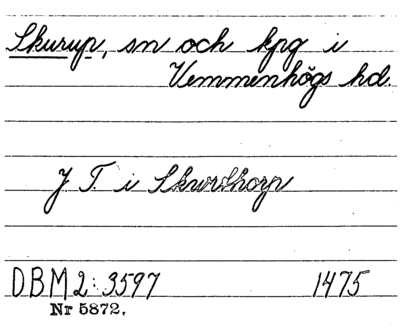 Skurup, sn och kpg i
Vemmenhögs hd.
J T. i Skwrdhorp
DBM 2: 3597 1475
Nr 5872.